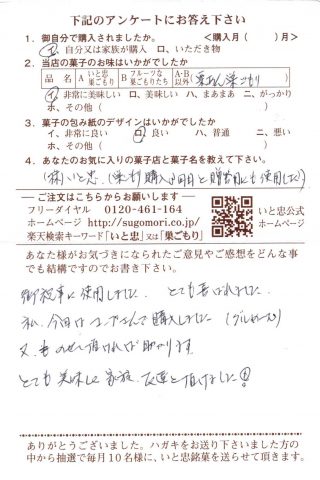 下記のアンケートにお答え下さい
1. 御自分で購入されましたか。 <購入月( )月>
イ、自分又は家族が購入 ロ、いただき物
2. 当店の菓子のお味はいかがでしたか
品名 A いと忠巣ごもり B フルーツな巣ごもりたち A・B以外
イ、非常に美味しい ロ、美味しい ハ、まあまあ ニ、がっかり
ホ、その他( )
3. 菓子の包み紙のデザインはいかがでしたか
イ、非常に良い ロ、良い ハ、普通 ニ、悪い
ホ、その他( )
4. あなたのお気に入りの菓子店と菓子名を教えて下さい。
(株)いと忠
―ご注文はこちらからお願いします―
フリーダイヤル 0120-461-164
ホームページ http://sugomori.co.jp/
楽天検索キーワード「いと忠」又は「巣ごもり」
いと忠公式
ホームページ
あなた様がお気づきになられたご意見やご感想をどんな事
でも結構ですのでお書き下さい。
使用しました。とても喜ばれました。
私、今回は 購入しました
又、 頂ければ助かります
とても美味しく家族、友達と頂けました
ありがとうございました。ハガキをお送り下さいました方の
中から抽選で毎月10名様に、いと忠銘菓を送らせて頂きます。